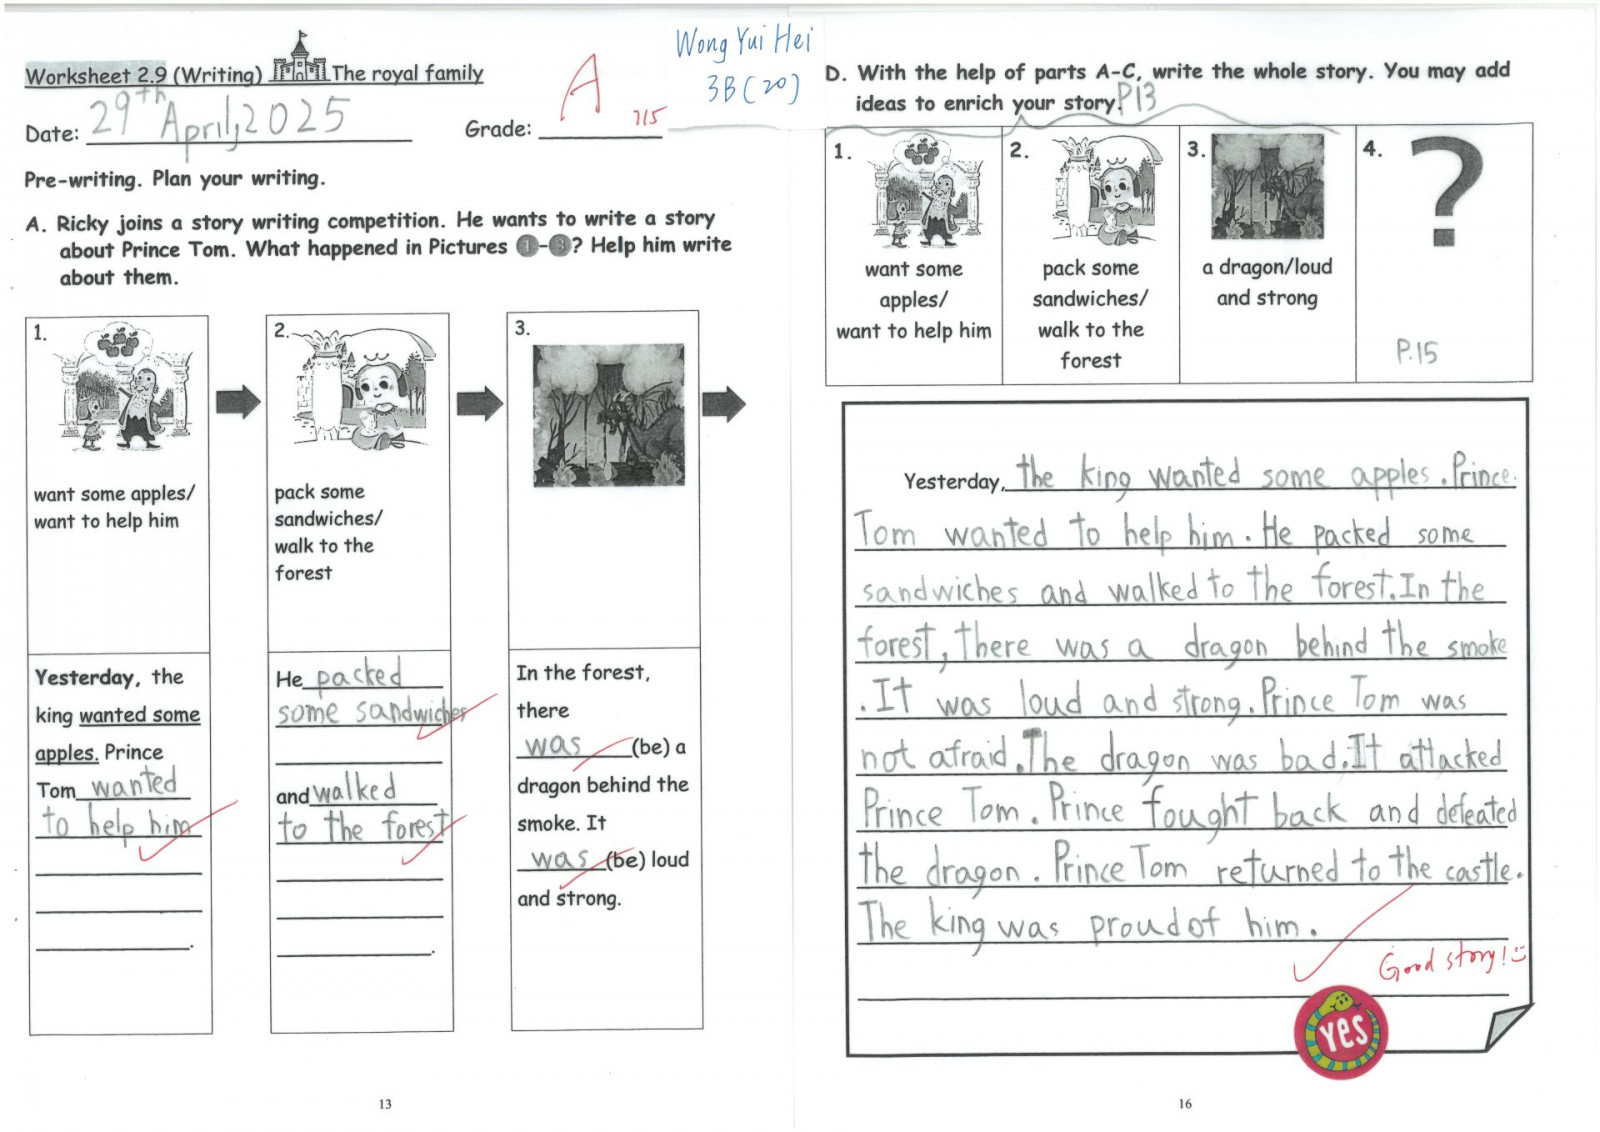 Worksheet 2.9 (Writing) The royal family
Date: 29th April, 2025
Grade: A
7/5
Wong Yui Hei
3B (20)
Pre-writing. Plan your writing.
A. Ricky joins a story writing competition. He wants to write a story
about Prince Tom. What happened in Pictures 1-3? Help him write
about them.
1.
want some apples/
want to help him
Yesterday, the
king wanted some
apples. Prince
Tom wanted
to help him
.
2.
pack some
sandwiches/
walk to the
forest
He packed
some sandwiches
and walked
to the forest
.
3.
In the forest,
there
was (be) a
dragon behind the
smoke. It
was (be) loud
and strong.
13
D. With the help of parts A-C, write the whole story. You may add
ideas to enrich your story. P13
1.
want some
apples/
want to help him
2.
pack some
sandwiches/
walk to the
forest
3.
a dragon/loud
and strong
4.
?
P.15
Yesterday, the king wanted some apples. Prince
Tom wanted to help him. He packed some
sandwiches and walked to the forest. In the
forest, there was a dragon behind the smoke
. It was loud and strong. Prince Tom was
not afraid. The dragon was bad. It attacked
Prince Tom. Prince fought back and defeated
the dragon. Prince Tom returned to the castle.
The king was proud of him.
Good story!
YES
16